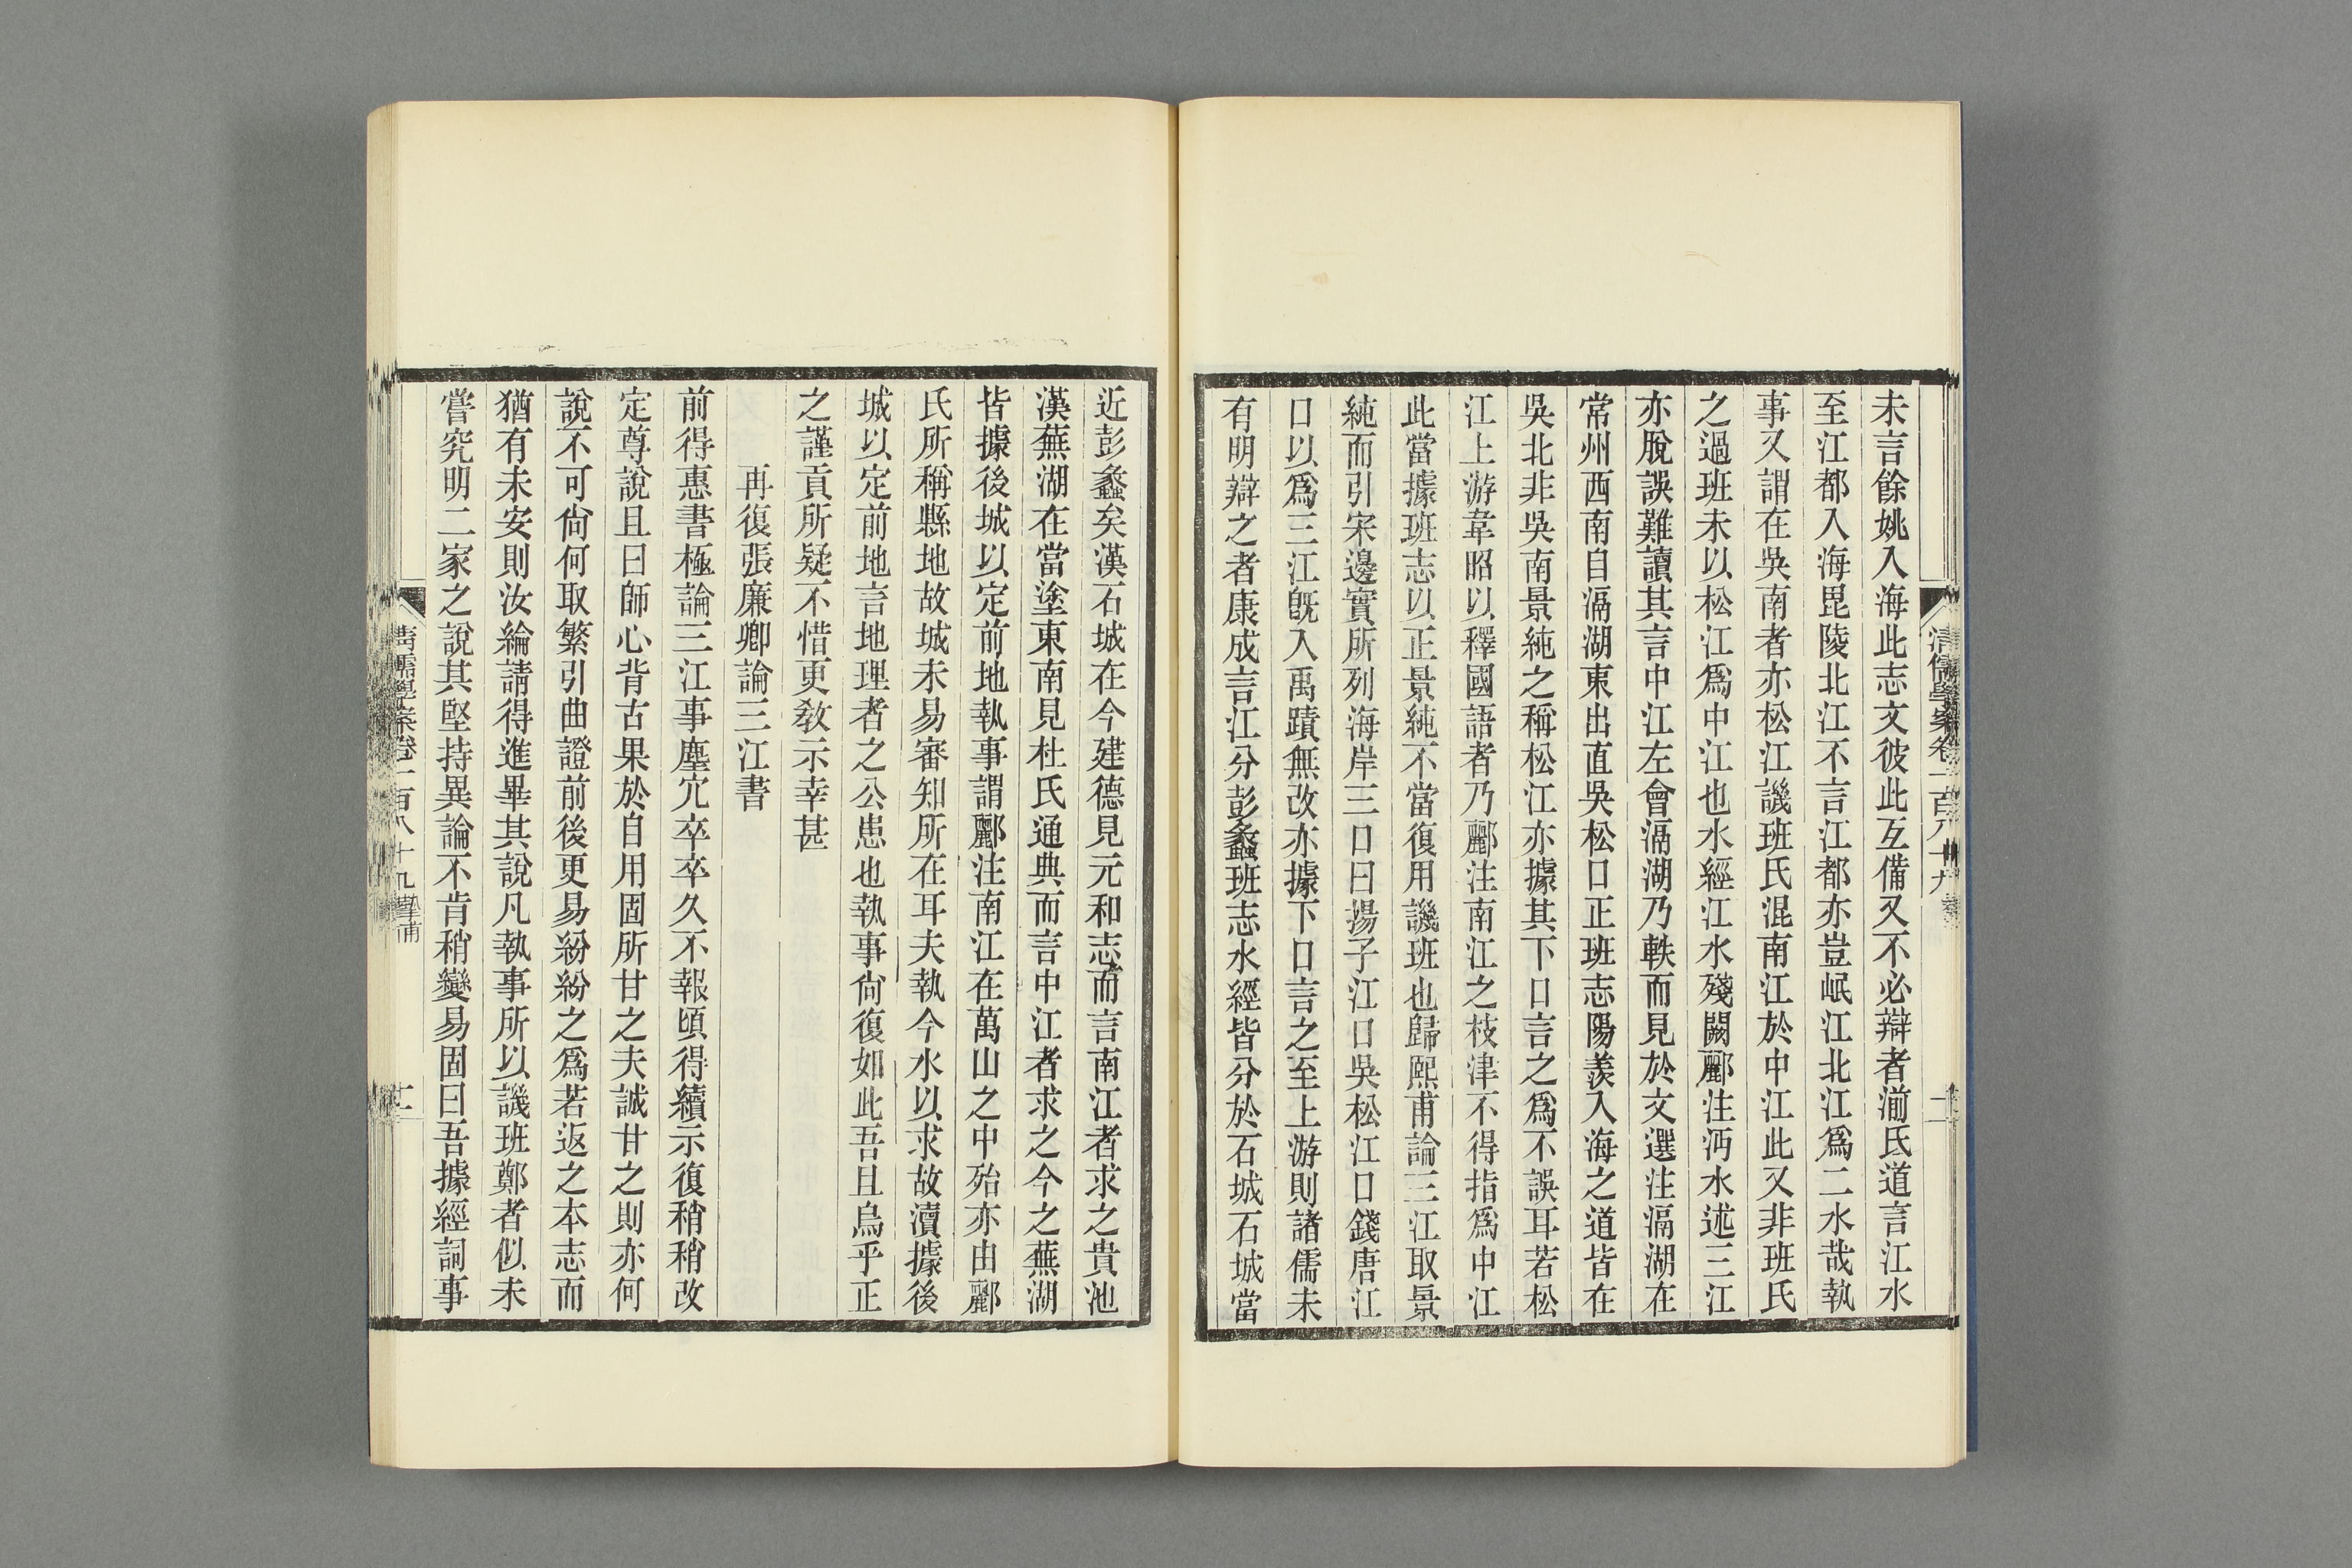 未言餘姚入海此志文彼此互備又不必辯者湔氐道言江水
至江都入海毘陵北江不言江都亦豈岷江北江爲二水哉執
事又謂在吳南者亦松江譏班氏混南江於中江此又非班氏
之過班未以松江爲中江也水經江水殘闕酈注沔水述三江
亦脫誤難讀其言中江左會滆湖乃軼而見於文選注滆湖在
常州西南自滆湖東出直吳松口正班志陽羨入海之道皆在
吳北非吳南景純之稱松江亦據其下口言之爲不誤耳若松
江上游韋昭以釋國語者乃酈注南江之枝津不得指爲中江
此當據班志以正景純不當復用譏班也歸熙甫論三江取景
純而引宋邊實所列海岸三口曰揚子江口吳松江口錢唐江
口以爲三江旣入禹蹟無改亦據下口言之至上游則諸儒未
有明辯之者康成言江分彭蠡班志水經皆分於石城石城當
清儒學案卷一百八十九
近彭蠡矣漢石城在今建德見元和志而言南江者求之貴池
漢蕪湖在當塗東南見杜氏通典而言中江者求之今之蕪湖
皆據後城以定前地執事謂酈注南江在萬山之中殆亦由酈
氏所稱縣地故城未易審知所在耳夫執今水以求故瀆據後
城以定前地言地理者之公患也執事尙復如此吾且烏乎正
之謹貢所疑不惜更敎示幸甚
再復張廉卿論三江書
前得惠書極論三江事塵宂卒卒久不報頃得續示復稍稍改
定尊說且曰師心背古果於自用固所甘之夫誠甘之則亦何
說不可尙何取繁引曲證前後更易紛紛之爲若返之本志而
猶有未安則汝綸請得進畢其說凡執事所以譏班鄭者似未
嘗究明二家之說其堅持異論不肯稍變易固曰吾據經詞事
清儒學案卷一百八十九摯甫